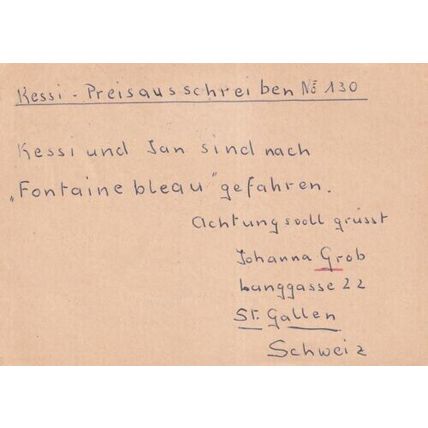 Kessi - Preisausschreiben № 130
Kessi und Jan sind nach
„Fontainebleau" gefahren.
Achtungsvoll grüsst
Johanna Grob
Langgasse 22
St. Gallen
Schweiz